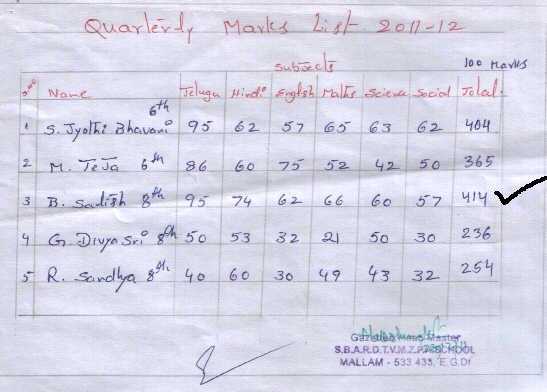 Quarterly Marks List 2011-12
Subjects 100 Marks
Name Telugu Hindi English Maths Science Social Total
1 S. Jyothi Bhavani 6th 95 62 57 65 63 62 404
2 M. Teja 6th 86 60 75 52 42 50 365
3 B. Satish 8th 95 74 62 66 60 57 414
4 G. Divya Sri 8th 50 53 32 21 50 30 236
5 R. Sandhya 8th 40 60 30 49 43 32 254
Master
SCHOOL
MALLAM - 533 433, E.G.Dt